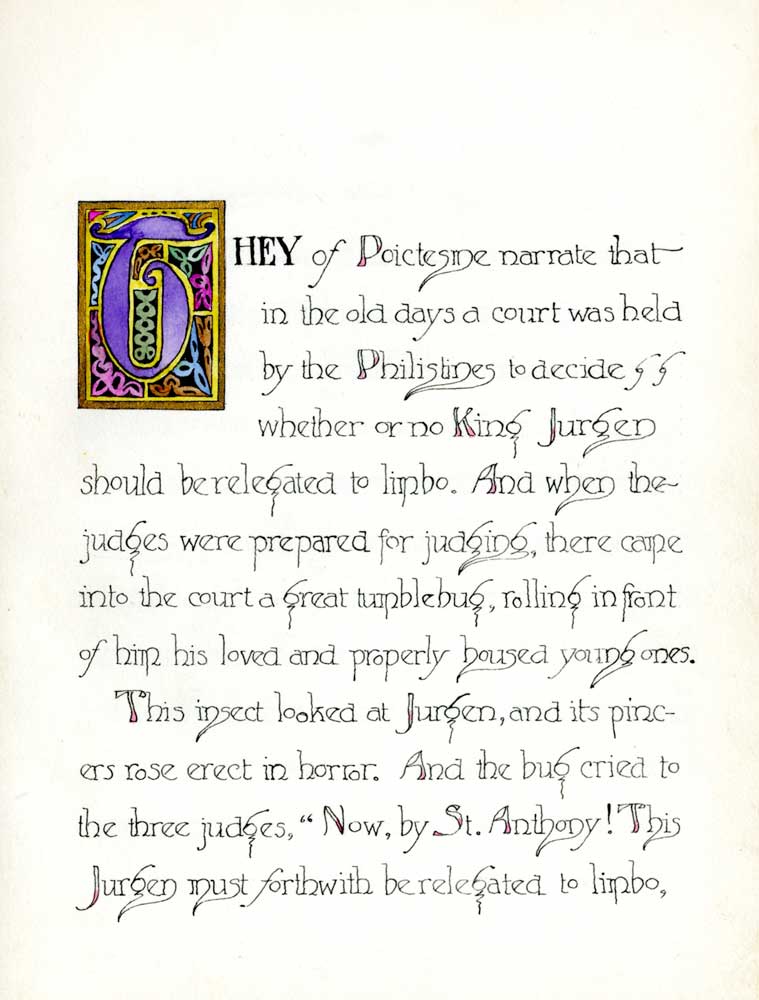 THEY of Poictesme narrate that
in the old days a court was held
by the Philistines to decide
whether or no King Jurgen
should be relegated to limbo. And when the
judges were prepared for judging, there came
into the court a great tumblebug, rolling in front
of him his loved and properly housed young ones.
This insect looked at Jurgen, and its pinc-
ers rose erect in horror. And the bug cried to
the three judges, “Now, by St. Anthony! This
Jurgen must forthwith be relegated to limbo,